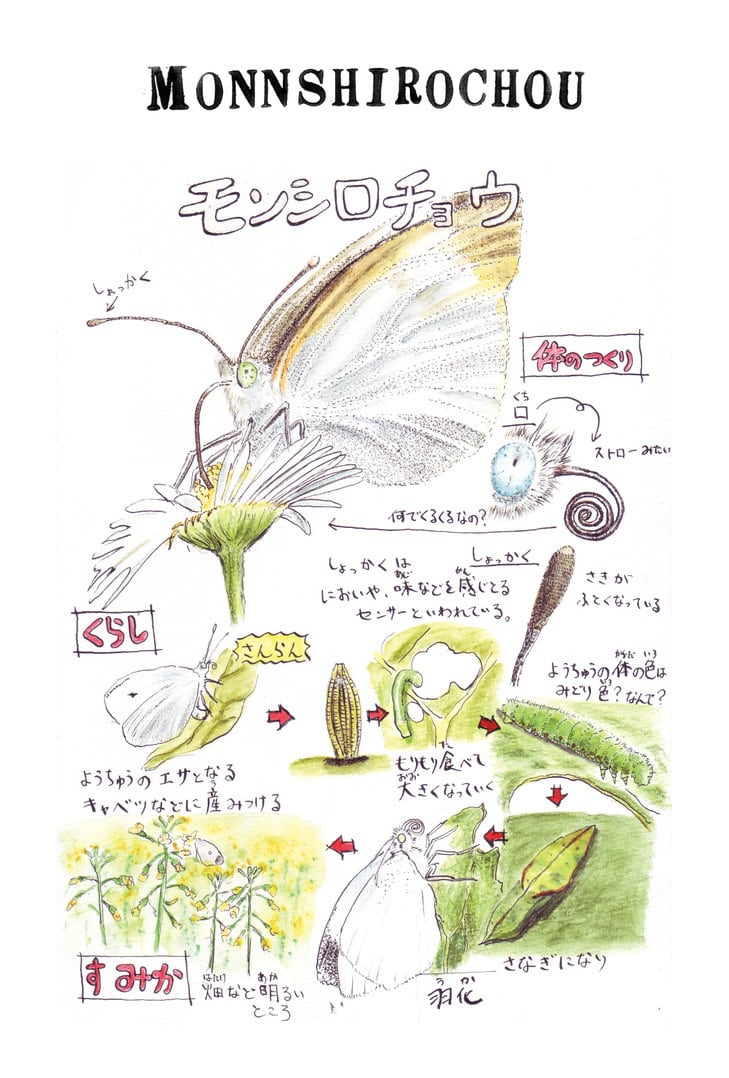 MONNSHIROCHOU
モンシロチョウ
しょっかく
体のつくり
くち
口
ストローみたい
何でくるくるなの？
しょっかく
さきが
ふとくなっている
しょっかくは
あじ かん
においや、味などを感じとる
センサーといわれている。
くらし
さんらん
からだ いろ
ようちゅうの体の色は
みどり色？なんで？
ようちゅうのエサとなる
う
キャベツなどに産みつける
た
もりもり食べて
おお
大きくなっていく
さなぎになり
うか
羽化
すみか
はたけ あか
畑など明るい
ところ